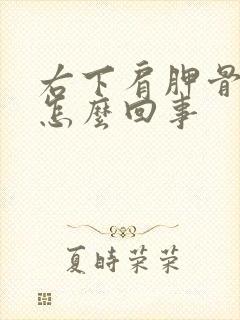 右下肩胛骨
怎麼回事
夏時榮榮